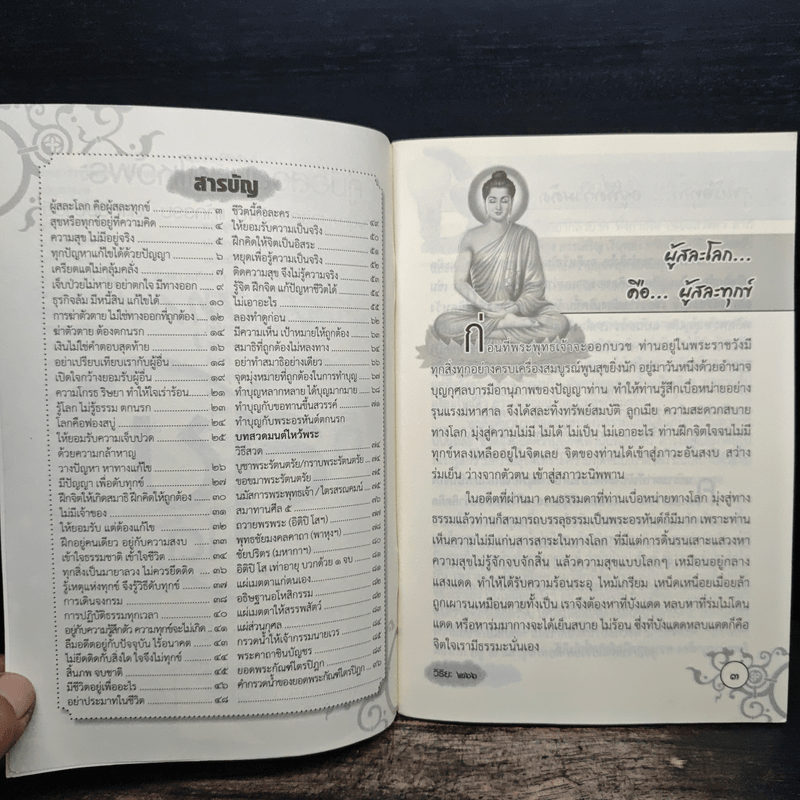 สารบัญ
ผู้สละโลก คือผู้สละทุกข์ ๓
สุขหรือทุกข์อยู่ที่ความคิด ๔
ความสุข ไม่มีอยู่จริง ๕
ทุกปัญหาแก้ไขได้ด้วยปัญญา ๖
เครียดแต่ไม่คลุ้มคลั่ง ๗
เจ็บป่วยไม่หาย อย่าตกใจ มีทางออก ๙
ธุรกิจล้ม มีหนี้สิน แก้ไขได้ ๑๐
การฆ่าตัวตาย ไม่ใช่ทางออกที่ถูกต้อง ๑๒
ฆ่าตัวตาย ต้องตกนรก ๑๔
เงินไม่ใช่คำตอบสุดท้าย ๑๖
อย่าเปรียบเทียบเรากับผู้อื่น ๑๘
เปิดใจกว้างยอมรับผู้อื่น ๑๙
ความโกรธ ริษยา ทำให้ใจเร่าร้อน ๒๑
รู้โลก ไม่รู้ธรรม ตกนรก ๒๒
โลกคือฟองสบู่ ๒๔
ให้ยอมรับความเจ็บปวด ๒๕
ด้วยความกล้าหาญ
วางปัญหา หาทางแก้ไข ๒๖
มีปัญญา เพื่อดับทุกข์ ๒๗
ฝึกจิตให้เกิดสมาธิ ฝึกคิดให้ถูกต้อง ๓๐
ไม่มีเจ้าของ ๓๑
ให้ยอมรับ แต่ต้องแก้ไข ๓๒
ฝึกอยู่คนเดียว อยู่กับความสงบ ๓๓
เข้าใจธรรมชาติ เข้าใจชีวิต ๓๔
ทุกสิ่งเป็นมายาลวง ไม่ควรยึดติด ๓๕
รู้เหตุแห่งทุกข์ จึงรู้วิธีดับทุกข์ ๓๗
การเดินจงกรม ๓๘
การปฏิบัติธรรมทุกเวลา ๔๐
อยู่กับความรู้สึกตัว ความทุกข์จะไม่เกิด ๔๑
ลืมอดีตอยู่กับปัจจุบัน ไร้อนาคต ๔๓
ไม่ยึดติดกับสิ่งใด ใจจึงไม่ทุกข์ ๔๔
สิ้นภพ จบชาติ ๔๕
มีชีวิตอยู่เพื่ออะไร ๔๖
อย่าประมาทในชีวิต ๔๘
ชีวิตนี้คือละคร ๔๙
ให้ยอมรับความเป็นจริง ๕๐
ฝึกคิดให้จิตเป็นอิสระ ๕๑
หยุดเพื่อรู้ความเป็นจริง ๕๒
ติดความสุข จึงไม่รู้ความจริง ๕๔
รู้จิต ฝึกจิต แก้ปัญหาชีวิตได้ ๕๕
ไม่เอาอะไร
ลองทำดูก่อน
มีความเห็น เป้าหมายให้ถูกต้อง
สมาธิที่ถูกต้องไม่หลงทาง
อย่าทำสมาธิอย่างเดียว
จุดมุ่งหมายที่ถูกต้องในการทำบุญ
ทำบุญหลากหลาย ได้บุญมากมาย
ทำบุญกับขอทานขึ้นสวรรค์
ทำบุญกับพระอรหันต์ตกนรก
บทสวดมนต์ไหว้พระ
วิธีสวด
บูชาพระรัตนตรัย/กราบพระรัตนตรัย
ขอขมาพระรัตนตรัย
นมัสการพระพุทธเจ้า/ไตรสรณคมน์
สมาทานศีล ๕
ถวายพรพระ (อิติปิ โสฯ)
พุทธชัยมงคลคาถา (พาหุงฯ)
ชัยปริตร (มหากาฯ)
อิติปิ โส เท่าอายุ บวกด้วย ๑ จบ
แผ่เมตตาแก่ตนเอง
อธิษฐานอโหสิกรรม
แผ่เมตตาให้สรรพสัตว์
แผ่ส่วนกุศล
กรวดน้ำให้เจ้ากรรมนายเวร
พระคาถาชินบัญชร
ยอดพระกัณฑ์ไตรปิฎก
คำกรวดน้ำของยอดพระกัณฑ์ไตรปิฎก
ผู้สละโลก...
คือ... ผู้สละทุกข์
ก่อนที่พระพุทธเจ้าจะออกบวช ท่านอยู่ในพระราชวังมี
ทุกสิ่งทุกอย่างครบเครื่องสมบูรณ์พูนสุขยิ่งนัก อยู่มาวันหนึ่งด้วยอำนาจ
บุญกุศลบารมีอานุภาพของปัญญาท่าน ทำให้ท่านรู้สึกเบื่อหน่ายอย่าง
รุนแรงมหาศาล จึงได้สละทิ้งทรัพย์สมบัติ ลูกเมีย ความสะดวกสบาย
ทางโลก มุ่งสู่ความไม่มี ไม่ได้ ไม่เป็น ไม่เอาอะไร ท่านฝึกจิตใจจนไม่มี
ทุกข์หลงเหลืออยู่ในจิตเลย จิตของท่านได้เข้าสู่ภาวะอันสงบ สว่าง
ร่มเย็น ว่างจากตัวตน เข้าสู่สภาวะนิพพาน
ในอดีตที่ผ่านมา คนธรรมดาที่ท่านเบื่อหน่ายทางโลก มุ่งสู่ทาง
ธรรมแล้วท่านก็สามารถบรรลุธรรมเป็นพระอรหันต์ก็มีมาก เพราะท่าน
เห็นความไม่มีแก่นสารสาระในทางโลก ที่มีแต่การดิ้นรนเสาะแสวงหา
ความสุขไม่รู้จักจบจักสิ้น แล้วความสุขแบบโลกๆ เหมือนอยู่กลาง
แสงแดด ทำให้ได้รับความร้อนระอุ ไหม้เกรียม เหน็ดเหนื่อยเมื่อยล้า
ถูกเผารนเหมือนตายทั้งเป็น เราจึงต้องหาที่บังแดด หลบหาที่ร่มไม่โดน
แดด หรือหาร่มมากางจะได้เย็นสบาย ไม่ร้อน ซึ่งที่บังแดดหลบแดดก็คือ
จิตใจเรามีธรรมะนั่นเอง
วิริยะ: ๒๖๖
๓